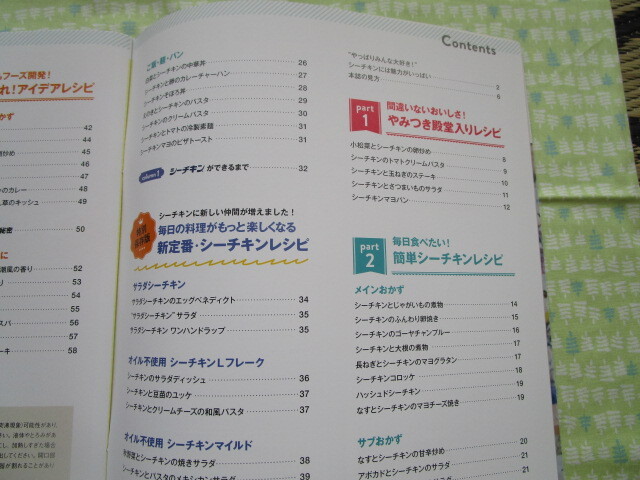 Contents
"やっぱりみんな大好き！"
シーチキンには魅力がいっぱい 2
本誌の見方 6
part 1
間違いないおいしさ！
やみつき殿堂入りレシピ
小松菜とシーチキンの卵炒め 8
シーチキンのトマトクリームパスタ 9
シーチキンと玉ねぎのステーキ 10
シーチキンとさつまいものサラダ 11
シーチキンマヨパン 12
part 2
毎日食べたい！
簡単シーチキンレシピ
メインおかず
シーチキンとじゃがいもの煮物 14
シーチキンのふんわり卵焼き 15
シーチキンのゴーヤチャンプルー 16
シーチキンと大根の煮物 17
長ねぎとシーチキンのマヨグラタン 17
シーチキンコロッケ 18
ハッシュドシーチキン 19
なすとシーチキンのマヨチーズ焼き 19
サブおかず
なすとシーチキンの甘辛炒め 20
アボカドとシーチキンのサラダ 21
21
ご飯・麺・パン
とシーチキンの中華丼 26
シーチキンと卵のカレーチャーハン 27
シーチキンそぼろ丼 28
とシーチキンのパスタ 29
シーチキンのクリームパスタ 30
シーチキンとトマトの冷製素麺 31
シーチキンマヨのピザトースト 31
column 1 シーチキンができるまで 32
シーチキンに新しい仲間が増えました！
毎日の料理がもっと楽しくなる
新定番・シーチキンレシピ
サラダシーチキン
サラダシーチキンのエッグベネディクト 34
"サラダシーチキン"サラダ 35
サラダシーチキン ワンハンドラップ 35
オイル不使用 シーチキンLフレーク
シーチキンのサラダディッシュ 36
シーチキンと豆苗のユッケ 37
シーチキンとクリームチーズの和風パスタ 37
オイル不使用 シーチキンマイルド
野菜とシーチキンの焼きサラダ 38
シーチキンとパスタのメキシカンサラダ 39
フーズ開発！
れ！アイデアレシピ
かず
42
44
炒め 45
46
47
のカレー 48
草のキッシュ 49
秘密 50
に
潮風の香り 52
り 53
54
55
スパ 56
57
ーキ 58